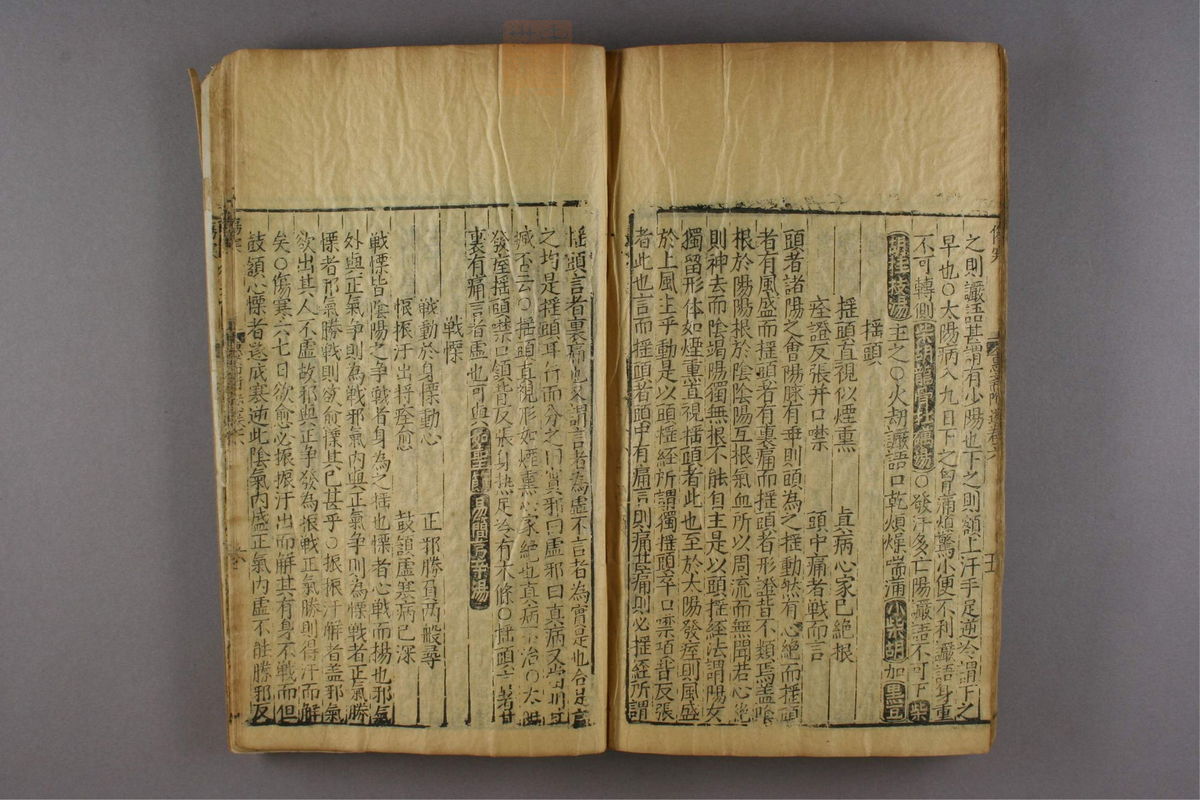 之則讝語甚謂有小陽也下之則額上汗手足逆冷謂下之
早也○太陽病八九日下之胷滿煩驚小便不利讝語身重
不可轉側柴胡龍骨牡蠣湯○發汗多亡陽讝語不可下柴
胡桂枝湯主之○火劫讝語口乾煩燥喘滿小柴胡加黒豆
揺頭
揺頭直視似煙熏　真病心家已絶根
痓證反張并口噤　頭中痛者戰而言
頭者諸陽之會陽脉有乖則頭為之揺動然有心絶而揺頭
者有風盛而揺頭者有裏痛而揺頭者形證皆不類焉蓋隂
根於陽陽根於隂隂陽互根氣血所以周流而無間若心絶
則神去而隂竭陽獨無根不能自主是以頭揺經法謂陽反
獨留形体如煙熏直視揺頭者此也至於太陽發痓則風盛
於上風主乎動是以頭揺經所謂獨揺頭卒口噤項背反張
者此也言而揺頭者頭中有痛言則痛甚痛則必揺經所謂
揺頭言者裏痛也又謂言者為虚不言者為實是也合是言
之均是揺頭耳行而分之曰實邪曰虚邪曰真病又
臧否云○揺頭直視形如煙熏心家絶也真病不治○太陽
發痓揺頭噤口領背反張身熱足冷有本條○揺頭言者
裏有痛言者虚也可與
戰慄
戰動於身慄動心　正邪勝負两般尋
悵振汗出将痊愈　鼓頷虚寒病已深
戰慄皆隂陽之争戰者身為之揺也慄者心戰而揚也邪氣
外與正氣争則為戰邪氣内與正氣争則為慄戰者正氣勝
慄者邪氣勝戰則欲愈慄其已甚乎○振振汗解者蓋邪氣
欲出其人本虚故邪與正争發為振戰正氣勝則得汗而解
矣○傷寒六七日欲愈必振振汗出而解其有身不戰而但
鼓頷心慄者遂成寒逆此隂氣内盛正氣内虚不能勝邪反